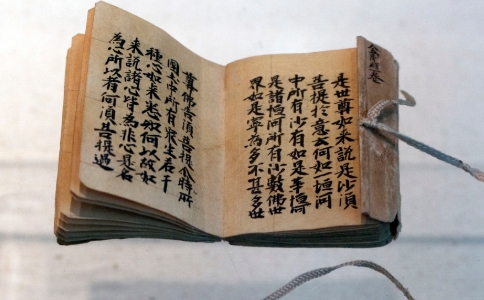 金剛經卷
是世尊如來說是沙須
菩提於意云何如一恒河
中所有沙有如是等恒河
是諸恒河所有沙數佛世
界如是寧為多不甚多世
尊佛告須菩提尒時所
國土中所有衆生若干
種心如來悉知何以故如
來說諸心皆為非心是名
為心所以者何須菩提過